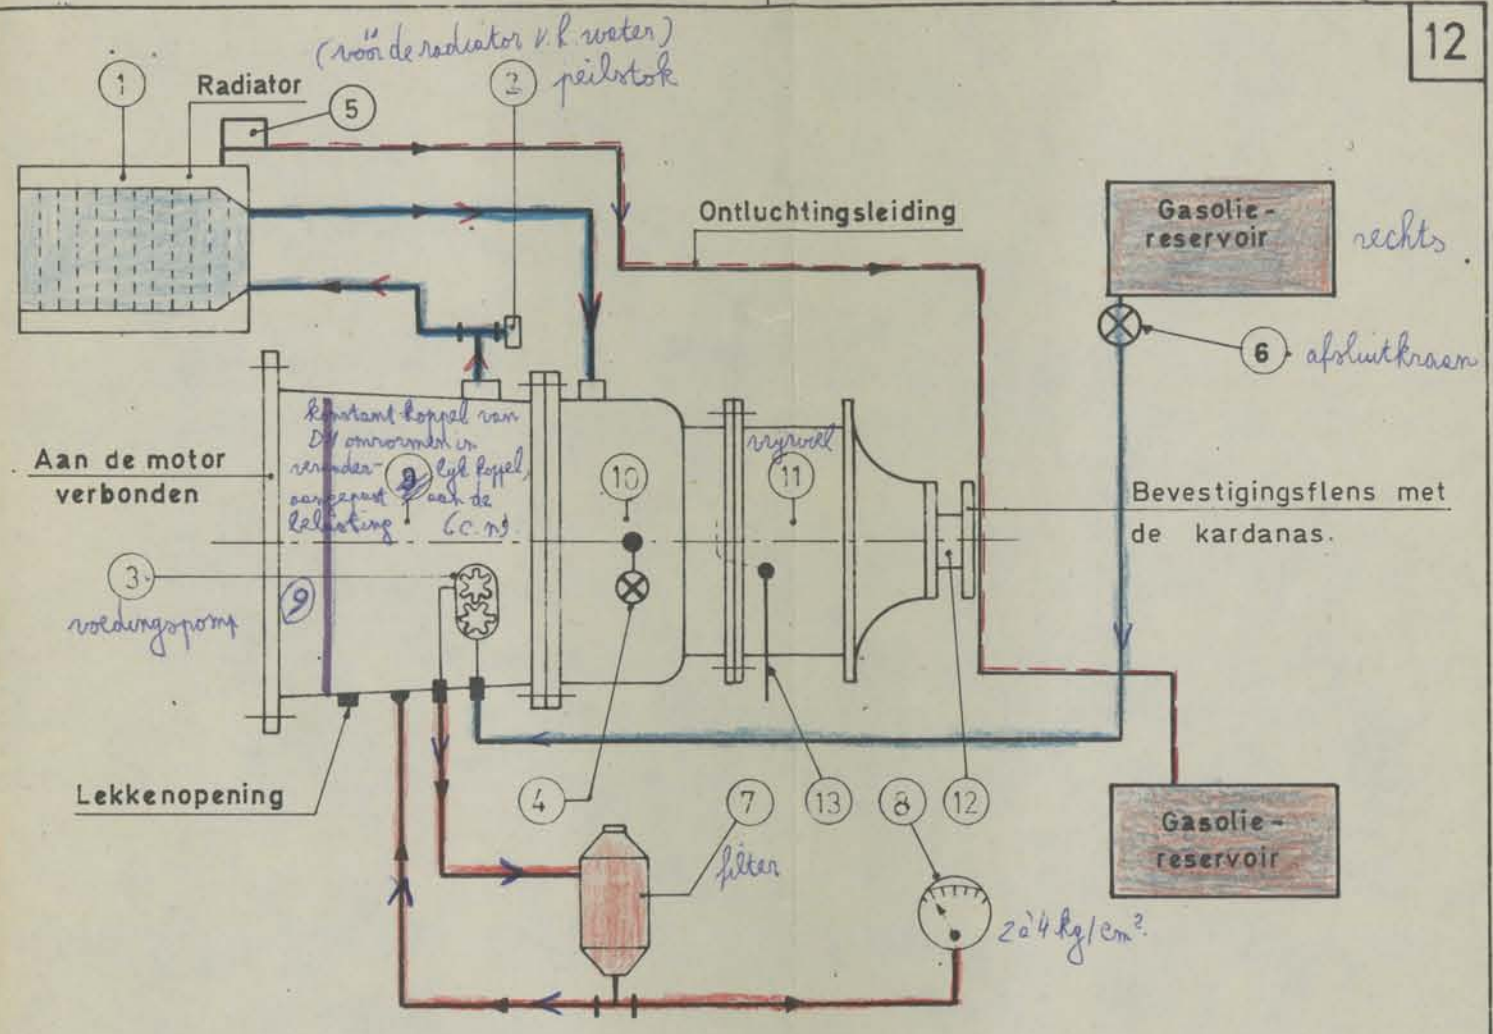 12
(vóór de radiator v.h. water)
1
Radiator
5
2
peilstok
Ontluchtingsleiding
Gasolie-
reservoir
rechts
6
afsluitkraan
Aan de motor
verbonden
konstant koppel van
DM omvormen in
verander- lijk koppel,
aangepast aan de
belasting (c.n).
9
9
10
vrijwiel
11
Bevestigingsflens met
de kardanas.
3
voedingspomp
Lekkenopening
4
7
filter
13
8
12
2 à 4 kg/cm².
Gasolie-
reservoir